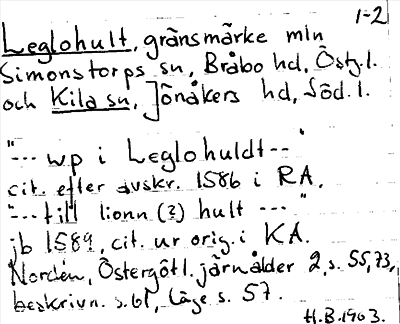 1-2
Leglohult, gränsmärke mln
Simonstorps sn, Bråbo hd, Östg.l.
och Kila sn, Jönåkers hd, Söd.l.
"--- wp i Leglohuldt--"
cit. efter avskr. 1586 i RA.
"--- till lionn (?) hult --- "
jb 1589, cit. ur orig. i KA.
Nordén, Östergötl. järnålder 2, s. 55, 73,
beskrivn. s. 61, läge s. 57.
H.B. 1963.